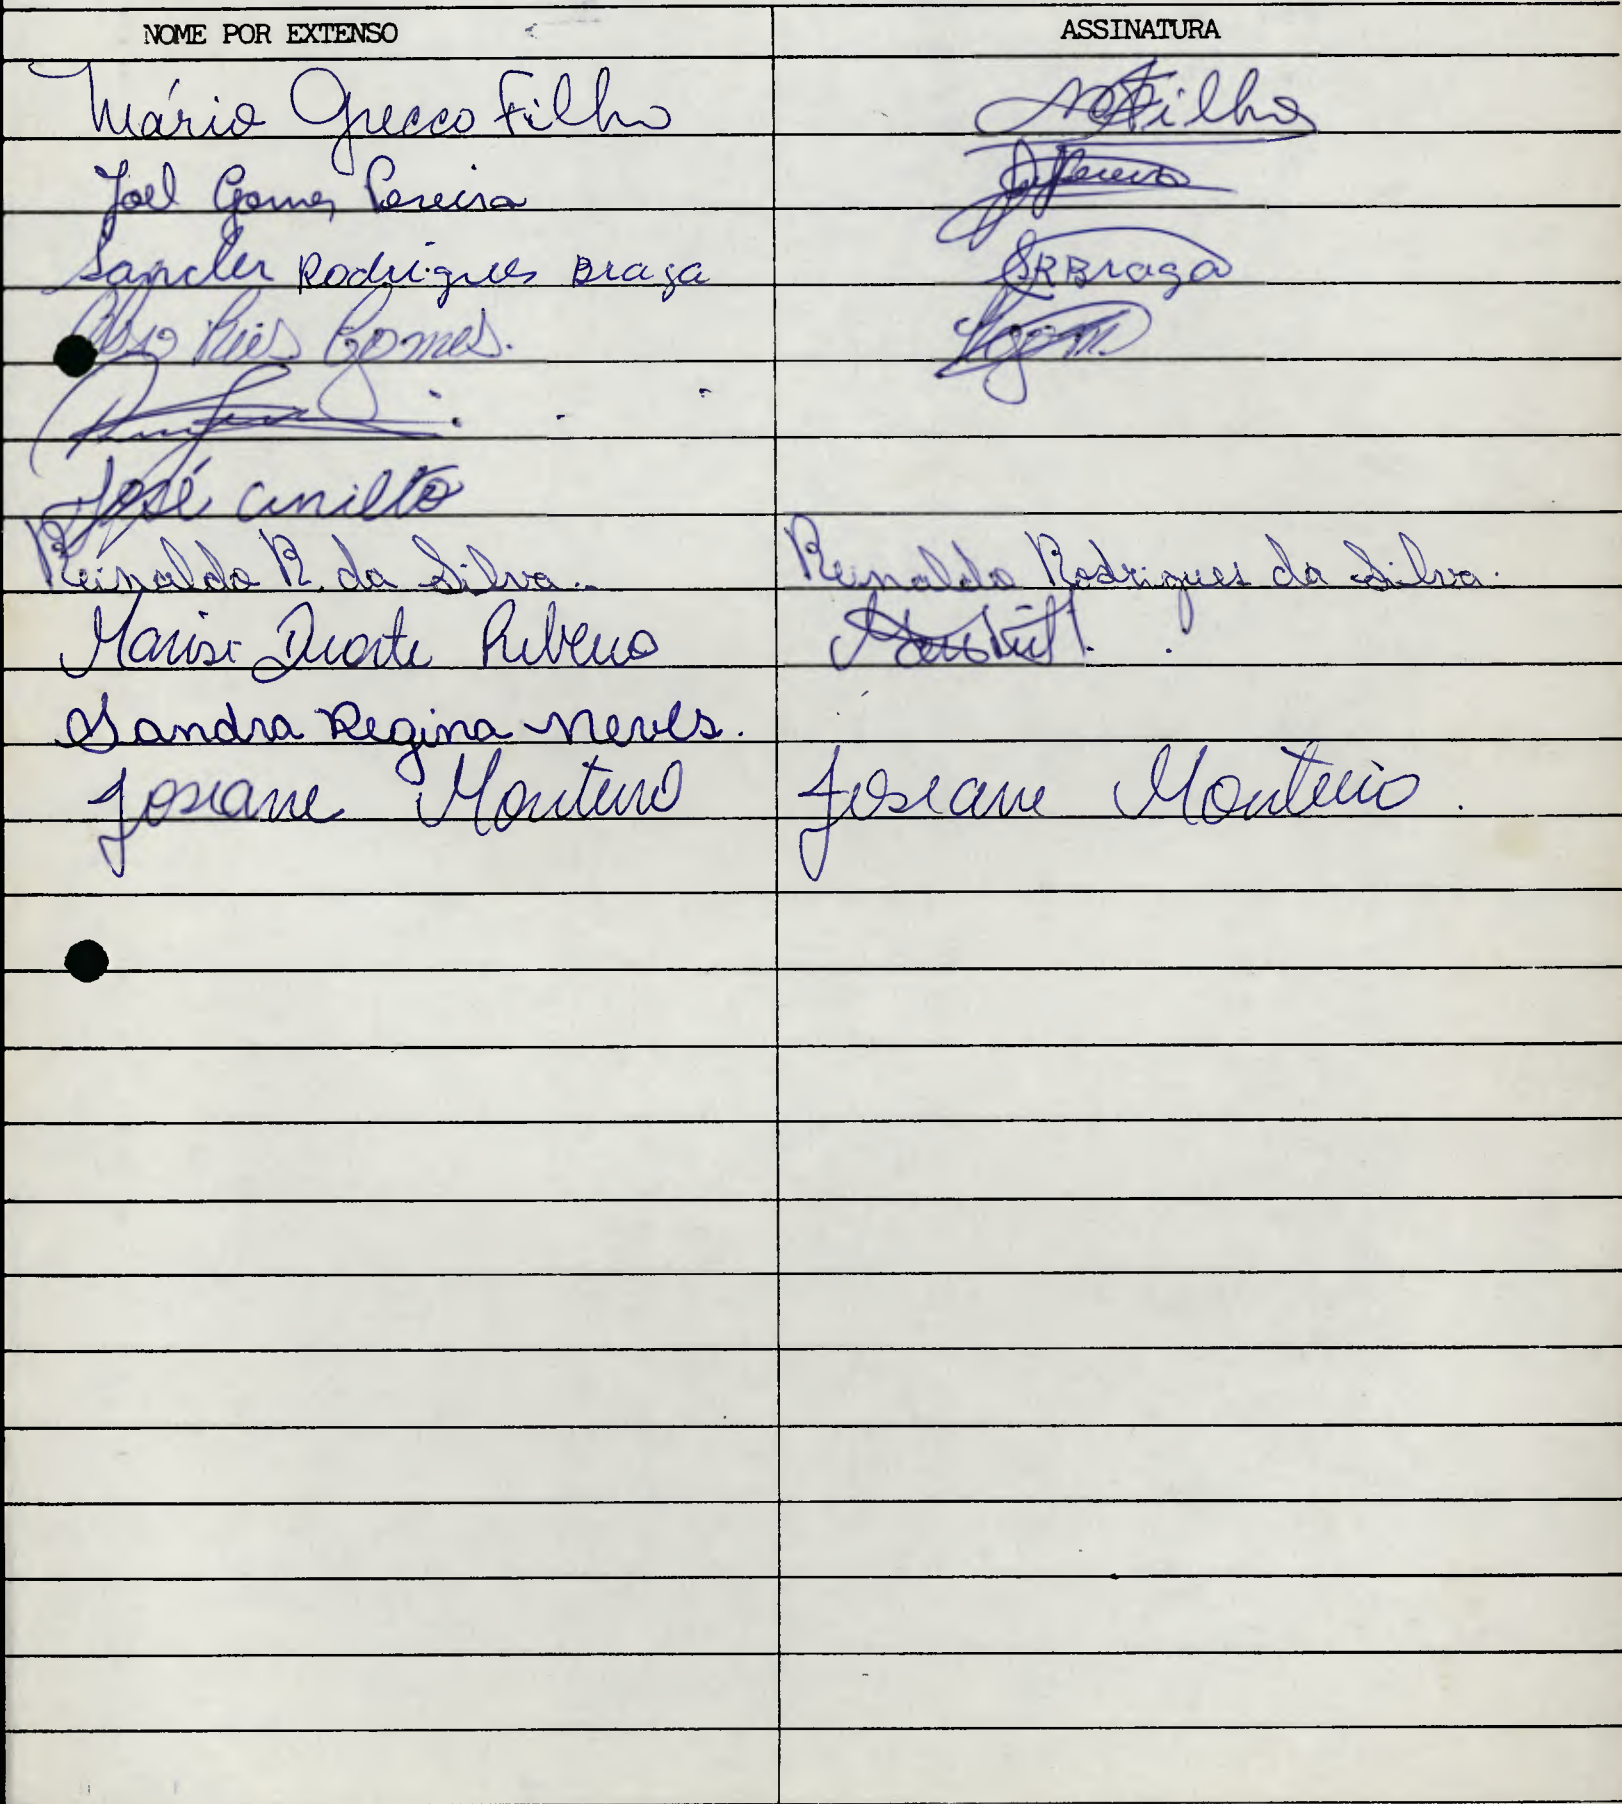 NOME POR EXTENSO ASSINATURA
Mário Grecco Filho Filho
Joel Gomes Pereira
Sander Rodrigues Braga SRBraga
Reis Gomes.
José
Reinaldo R. da Silva. Reinaldo Rodrigues da Silva.
Duarte Ribeiro
Sandra Regina Neves.
Joseane Monteiro Joseane Monteiro.